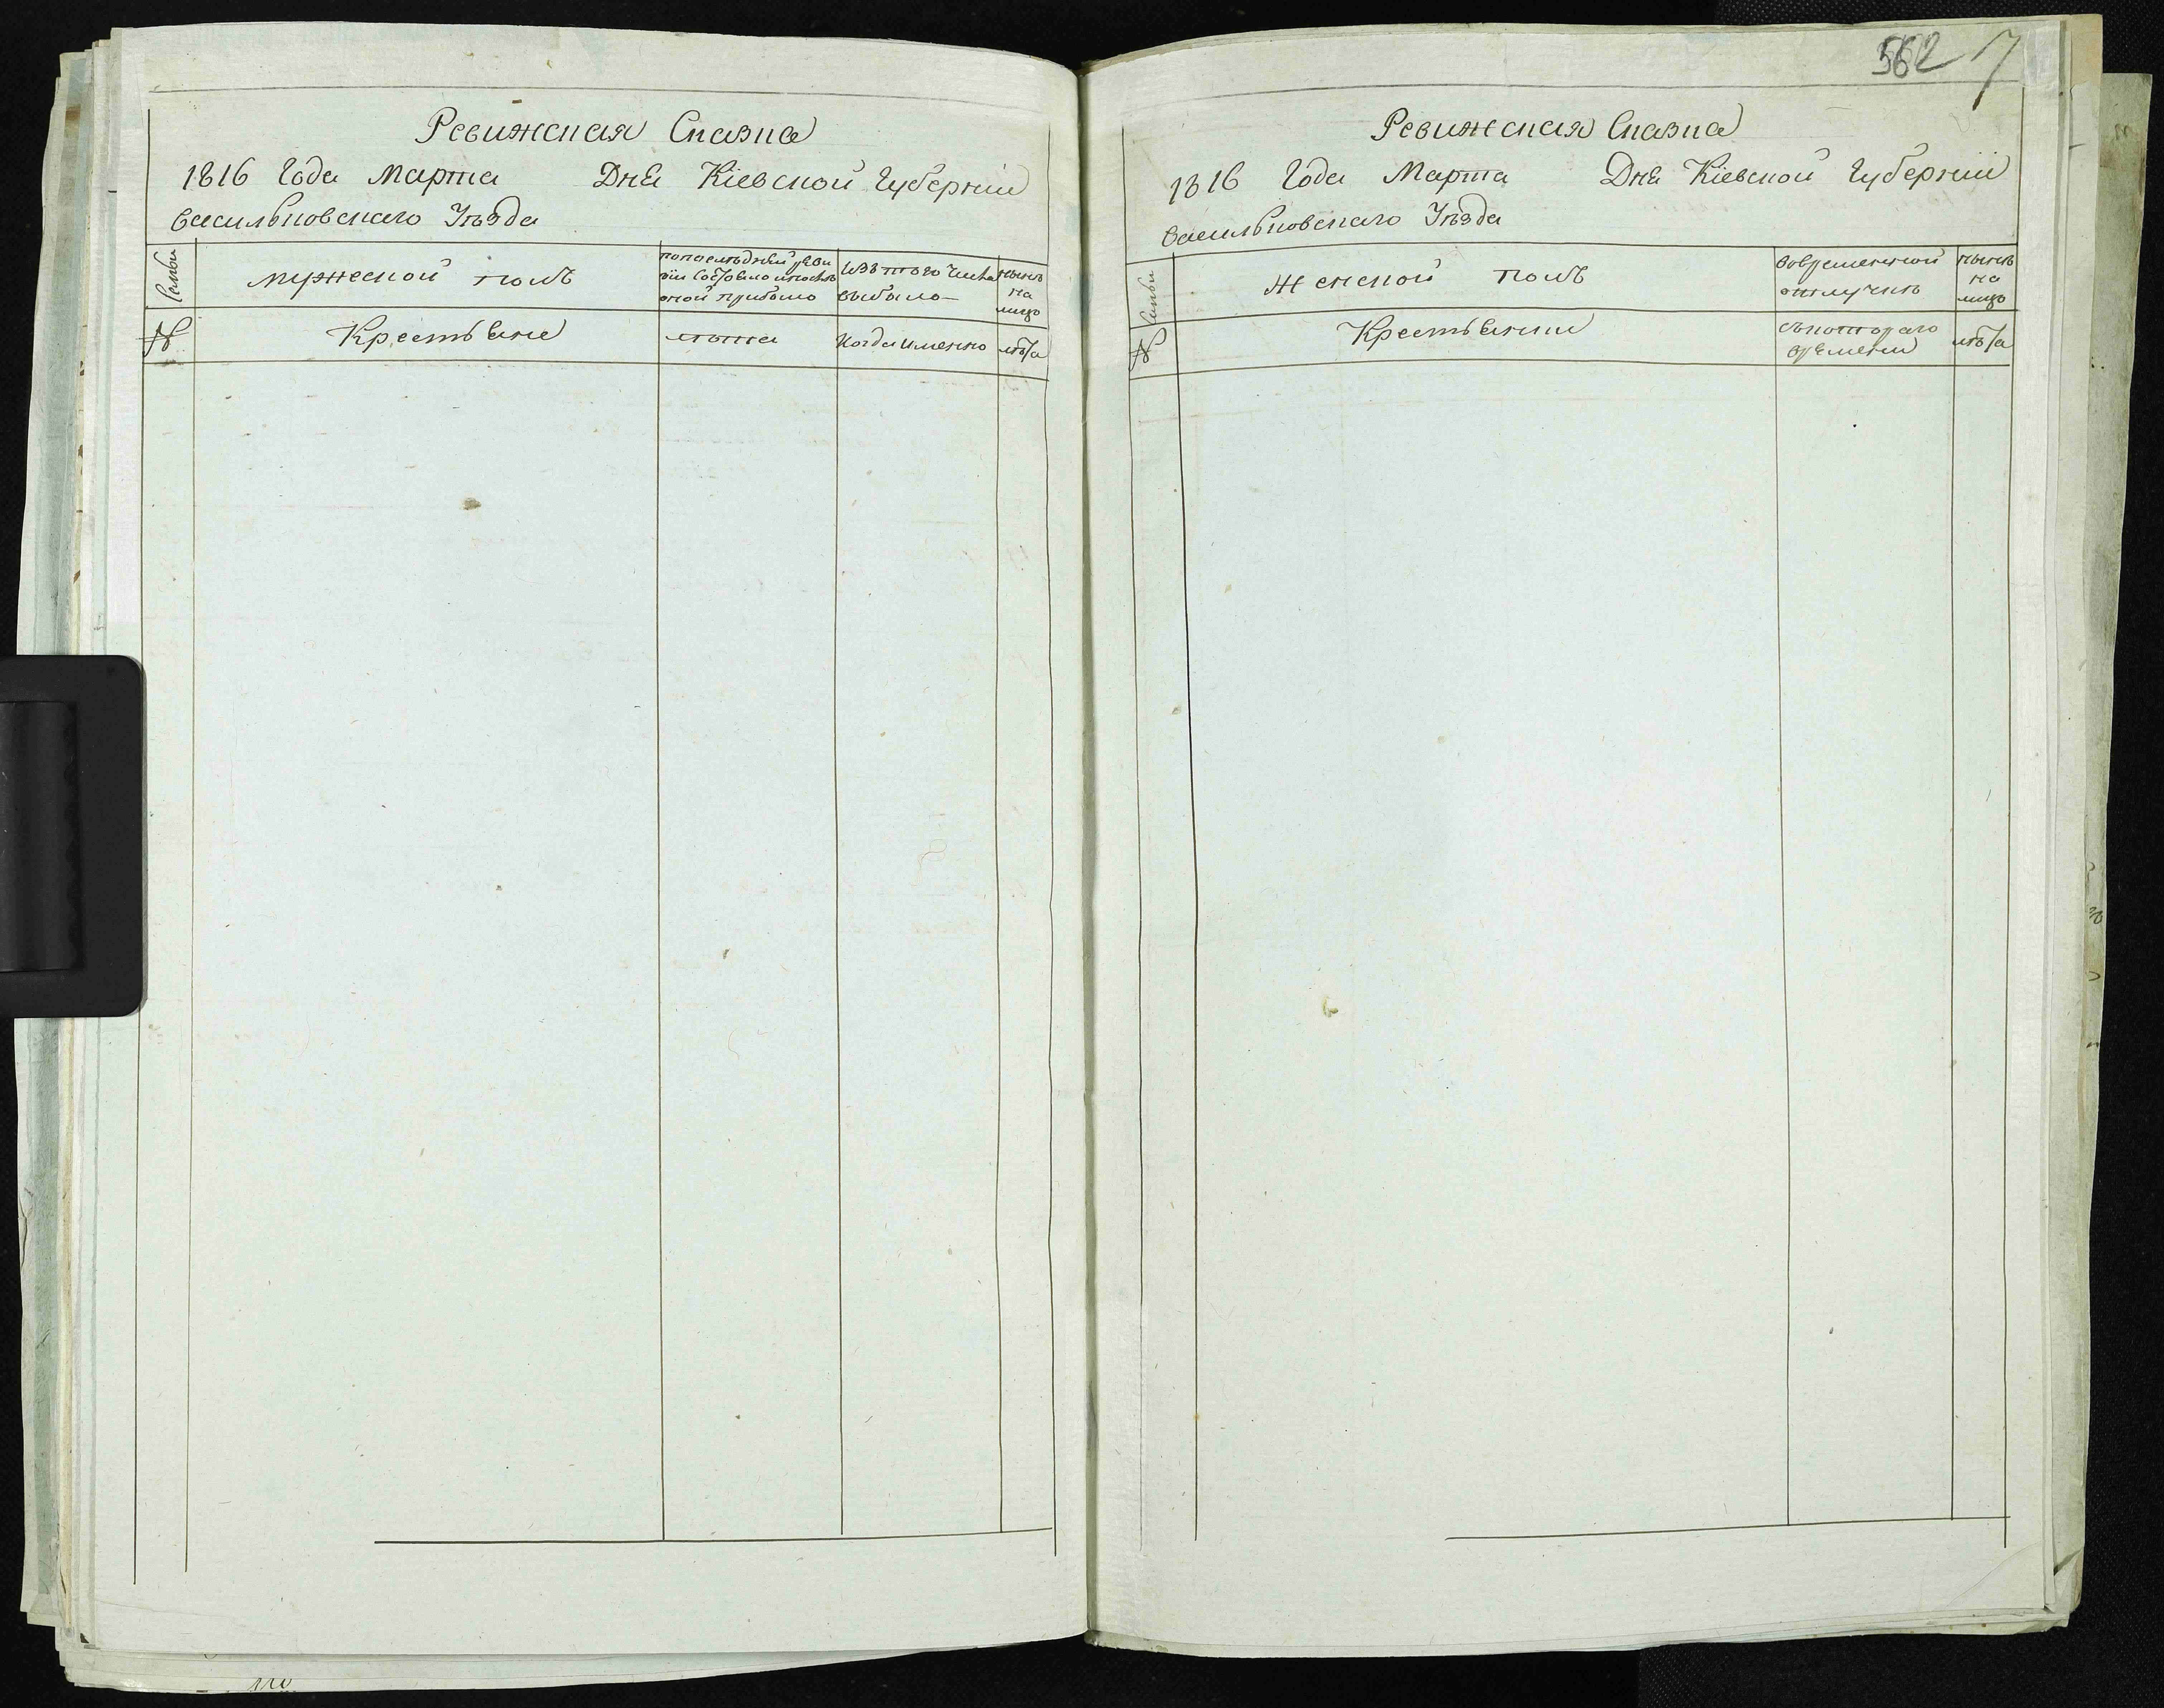 Ревижская Сказка
1816 Года Марта Дня Кіевской Губерніи
Васильковскаго Уѣзда
Семьи
мужеской полъ
попоследней реви
зіи Состояло ипослѣ
оной прибыло
Изъ того Числа
выбыло
нынѣ
на
лицо
№
Крестьяне
лѣта
Когда именно
лѣта
562 7
Ревижская Сказка
1816 Года Марта Дня Кіевской Губерніи
Васильковскаго Уѣзда
Семьи
Женской полъ
вовременной
отлучкѣ
нынѣ
на
лицо
№
Крестьянки
съкотораго
времени
лѣта